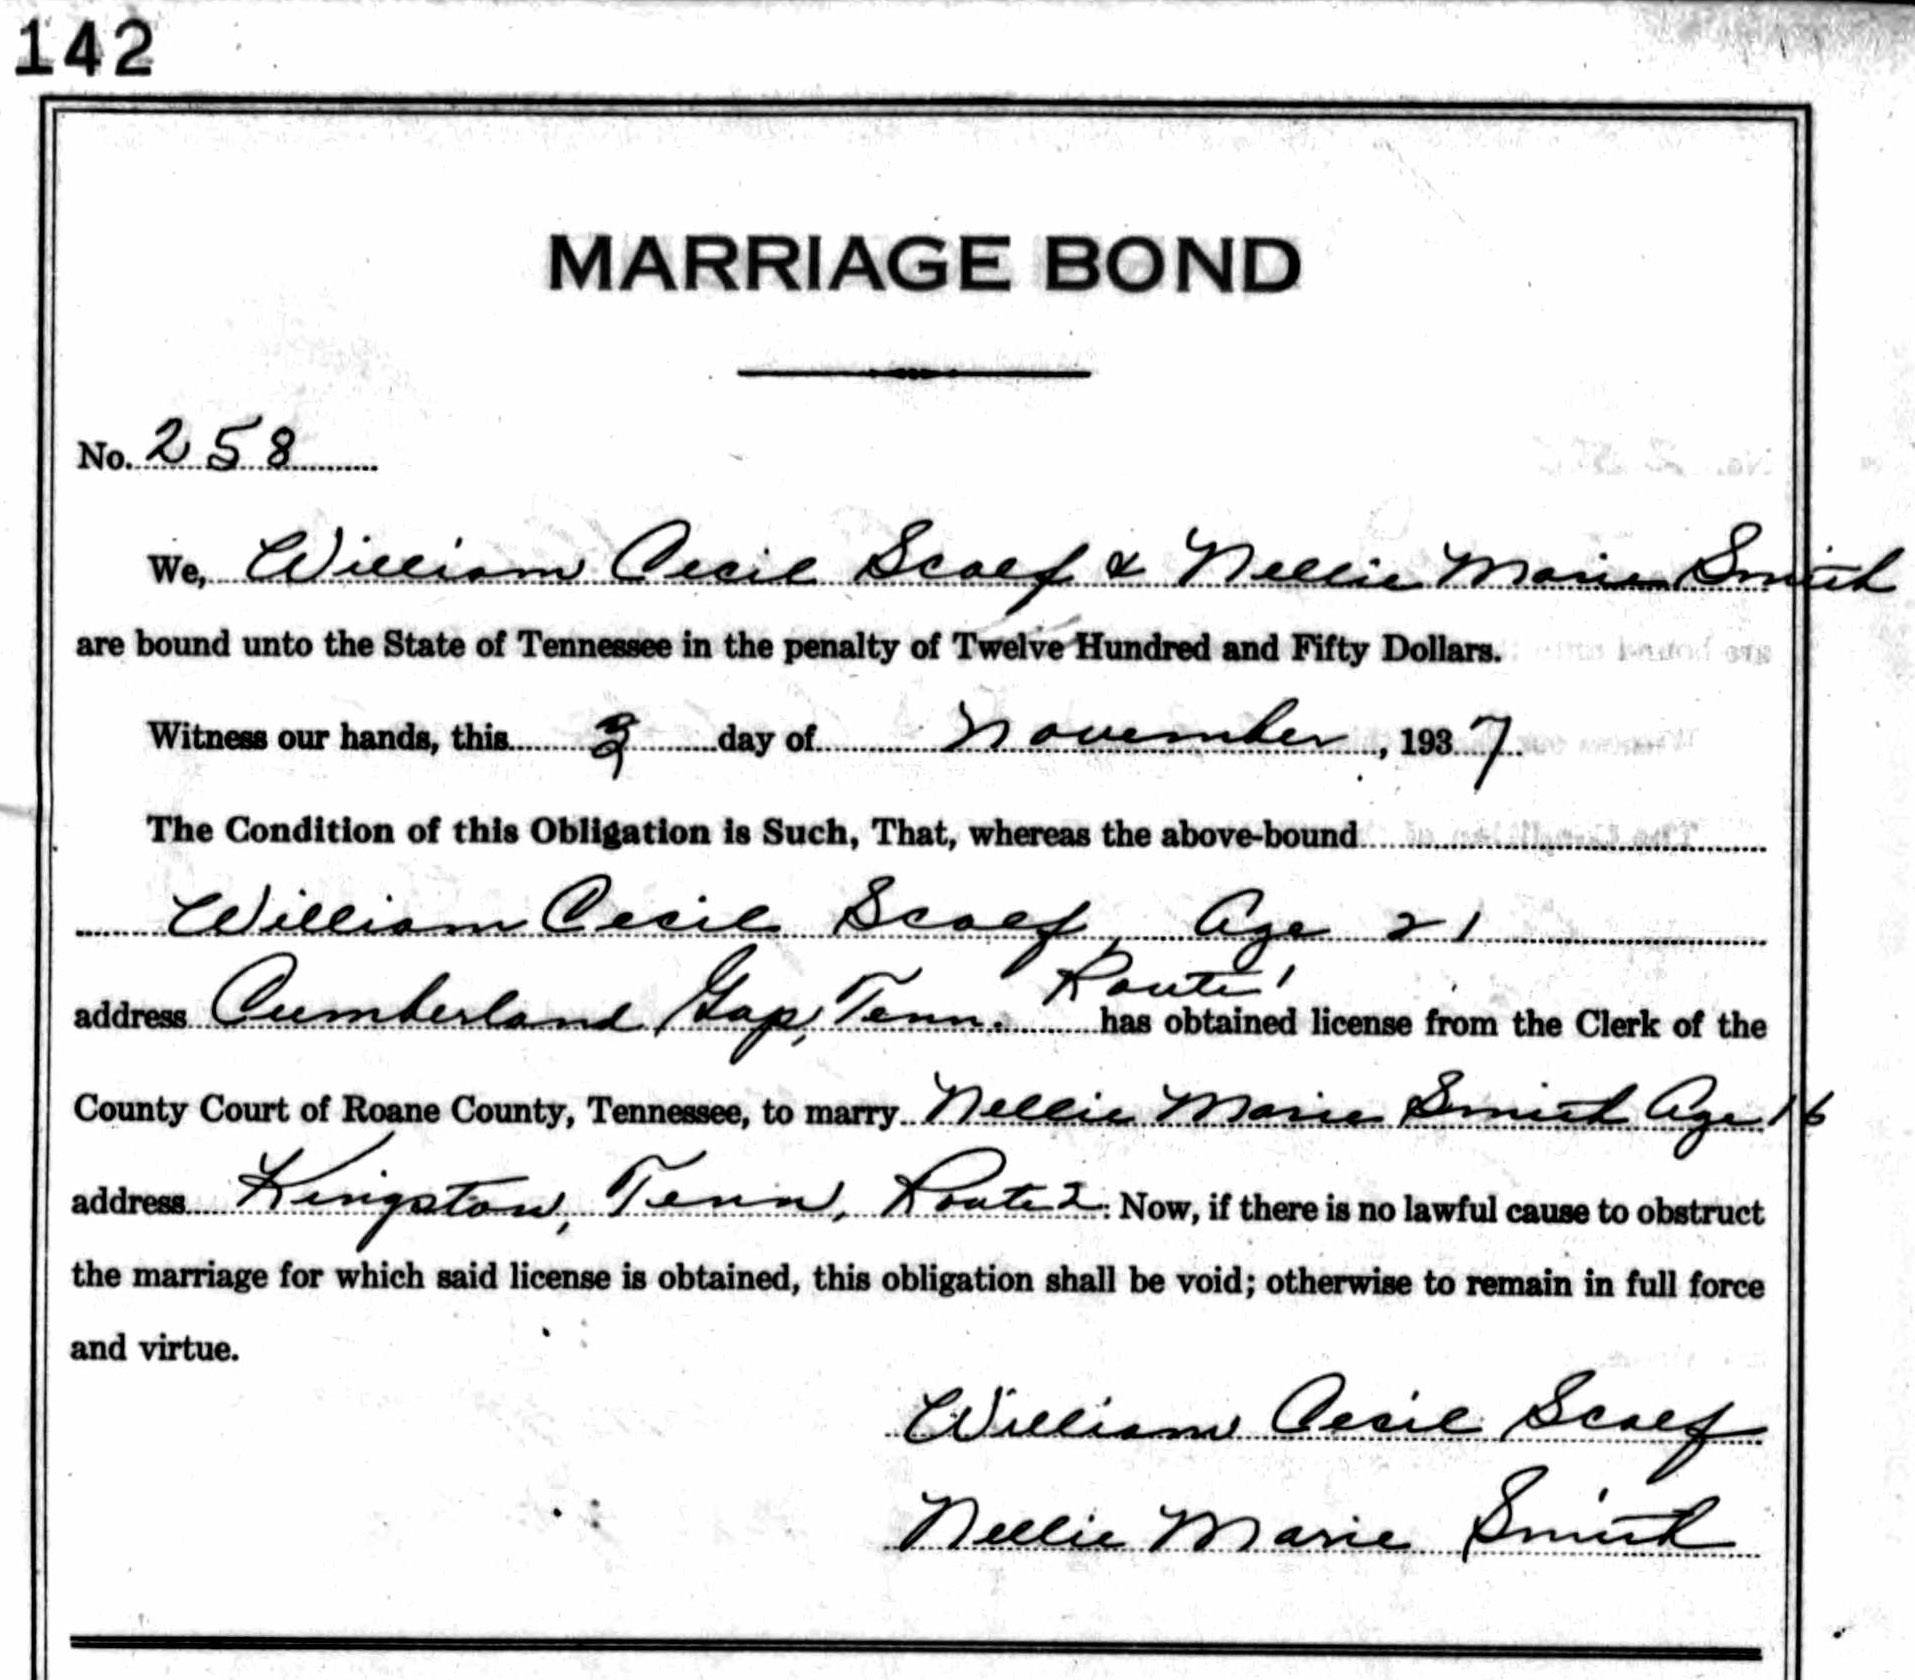 142
MARRIAGE BOND
No. 258
We, William Cecil Scalf & Nellie Marie Smith
are bound unto the State of Tennessee in the penalty of Twelve Hundred and Fifty Dollars.
Witness our hands, this 3 day of November, 1937
The Condition of this Obligation is Such, That, whereas the above-bound
William Cecil Scalf, Age 21
address Cumberland Gap, Tenn. Route 1 has obtained license from the Clerk of the
County Court of Roane County, Tennessee, to marry Nellie Marie Smith Age 16
address Kingston, Tenn, Route 2: Now, if there is no lawful cause to obstruct
the marriage for which said license is obtained, this obligation shall be void; otherwise to remain in full force
and virtue.
William Cecil Scalf
Nellie Marie Smith